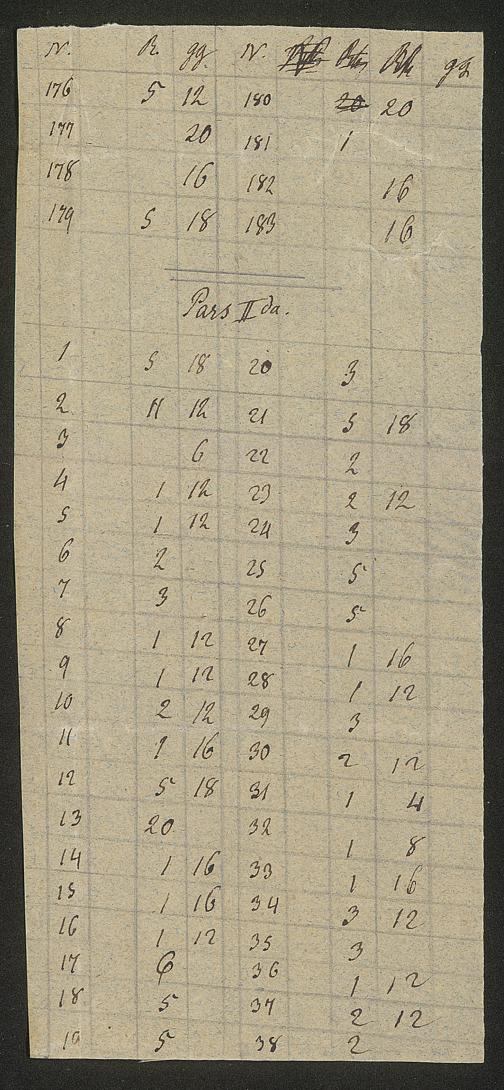 N. R. gg. N. Rtlr gg
176 5 12 180 20 20
177 20 181 1
178 16 182 16
179 5 18 183 16
Pars II da.
1 5 18 20 3
2 11 12 21 5 18
3 6 22 2
4 1 12 23 2 12
5 1 12 24 3
6 2 25 5
7 3 26 5
8 1 12 27 1 16
9 1 12 28 1 12
10 2 12 29 3
11 1 16 30 2 12
12 5 18 31 1 4
13 20 32 1 8
14 1 16 33 1 16
15 1 16 34 3 12
16 1 12 35 3
17 6 36 1 12
18 5 37 2 12
19 5 38 2